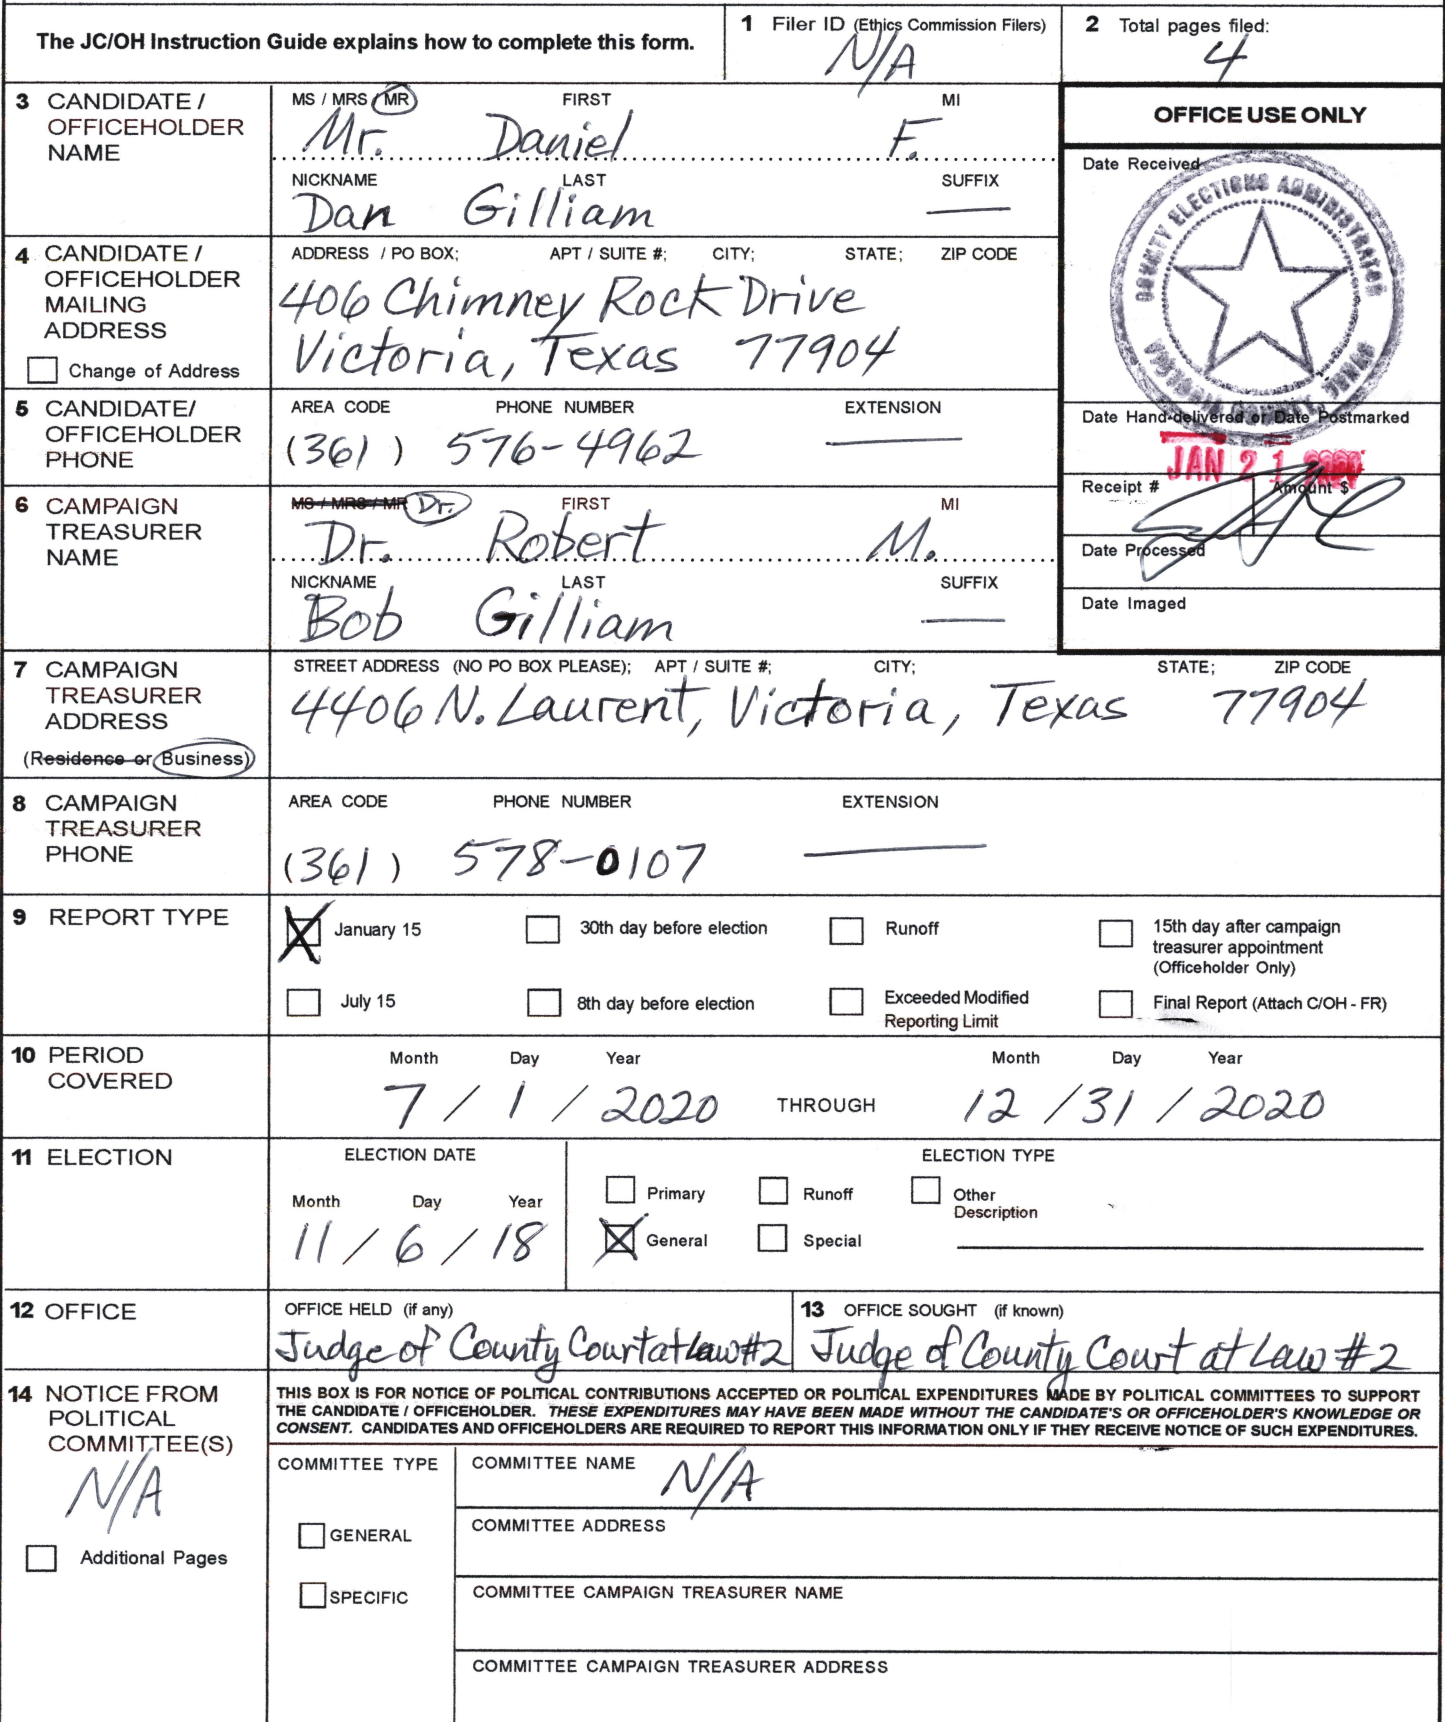 The JC/OH Instruction Guide explains how to complete this form.
1 Filer ID (Ethics Commission Filers)
N/A
2 Total pages filed:
4
3 CANDIDATE / OFFICEHOLDER NAME
MS / MRS / MR FIRST MI
Mr. Daniel F.
NICKNAME LAST SUFFIX
Dan Gilliam —
OFFICE USE ONLY
Date Received
COUNTY ELECTIONS ADMINISTRATOR
VICTORIA COUNTY, TEXAS
Date Hand-delivered or Date Postmarked
JAN 21
Receipt # Amount $
Date Processed
Date Imaged
4 CANDIDATE / OFFICEHOLDER MAILING ADDRESS
Change of Address
ADDRESS / PO BOX; APT / SUITE #; CITY; STATE; ZIP CODE
406 Chimney Rock Drive
Victoria, Texas 77904
5 CANDIDATE/ OFFICEHOLDER PHONE
AREA CODE PHONE NUMBER EXTENSION
(361) 576-4962 —
6 CAMPAIGN TREASURER NAME
MS / MRS / MR Dr. FIRST MI
Dr. Robert M.
NICKNAME LAST SUFFIX
Bob Gilliam —
7 CAMPAIGN TREASURER ADDRESS
(Residence or Business)
STREET ADDRESS (NO PO BOX PLEASE); APT / SUITE #; CITY; STATE; ZIP CODE
4406 N. Laurent, Victoria, Texas 77904
8 CAMPAIGN TREASURER PHONE
AREA CODE PHONE NUMBER EXTENSION
(361) 578-0107 —
9 REPORT TYPE
January 15 30th day before election Runoff 15th day after campaign treasurer appointment (Officeholder Only)
July 15 8th day before election Exceeded Modified Reporting Limit Final Report (Attach C/OH - FR)
10 PERIOD COVERED
Month Day Year Month Day Year
7 / 1 / 2020 THROUGH 12 / 31 / 2020
11 ELECTION
ELECTION DATE
Month Day Year
11 / 6 / 18
ELECTION TYPE
Primary Runoff Other Description
General Special
12 OFFICE
OFFICE HELD (if any)
Judge of County Court at Law #2
13 OFFICE SOUGHT (if known)
Judge of County Court at Law #2
14 NOTICE FROM POLITICAL COMMITTEE(S)
N/A
Additional Pages
THIS BOX IS FOR NOTICE OF POLITICAL CONTRIBUTIONS ACCEPTED OR POLITICAL EXPENDITURES MADE BY POLITICAL COMMITTEES TO SUPPORT
THE CANDIDATE / OFFICEHOLDER. THESE EXPENDITURES MAY HAVE BEEN MADE WITHOUT THE CANDIDATE'S OR OFFICEHOLDER'S KNOWLEDGE OR
CONSENT. CANDIDATES AND OFFICEHOLDERS ARE REQUIRED TO REPORT THIS INFORMATION ONLY IF THEY RECEIVE NOTICE OF SUCH EXPENDITURES.
COMMITTEE TYPE
GENERAL
SPECIFIC
COMMITTEE NAME
N/A
COMMITTEE ADDRESS
COMMITTEE CAMPAIGN TREASURER NAME
COMMITTEE CAMPAIGN TREASURER ADDRESS